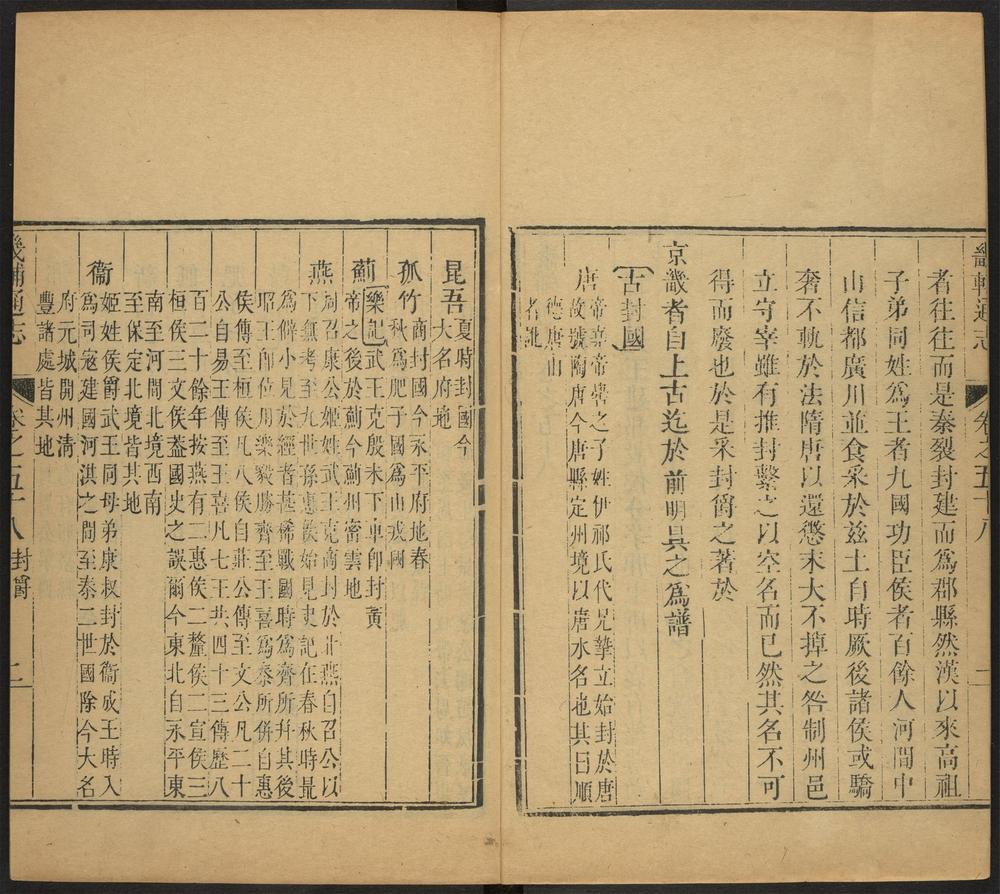 畿輔通志
卷之五十八
一
者往往而是秦裂封建而爲郡縣然漢以來高祖
子弟同姓爲王者九國功臣侯者百餘人河間中
山信都廣川並食采於兹土自時厥後諸侯或驕
奢不軌於法隋唐以還懲末大不掉之咎制州邑
立守宰雖有推封繫之以空名而已然其名不可
得而廢也於是采封爵之著於
京畿者自上古迄於前明具之爲譜
古封國
唐
帝堯帝嚳之子姓伊祁氏代兄摯立始封於唐
故號陶唐今唐縣定州境以唐水名也其曰順
德唐山
者訛
昆吾
夏時封國今
大名府地
孤竹
商封國今永平府地春
秋爲肥子國爲山戎國
薊
樂記武王克殷未下車即封黃
帝之後於薊今薊州密雲地
燕
周召康公姬姓武王克商封於北燕自召公以
下無考至九世孫惠侯始見史記在春秋時最
爲僻小見於經者甚稀戰國時爲齊所并其後
昭王卽位用樂毅勝齊至王喜爲秦所併自惠
侯傳至桓侯凡八侯自莊公傳至文公凡二十
公自易王傳至王喜凡七王共四十三傳歷八
百二十餘年按燕有二惠侯二釐侯二宣侯三
桓侯三文侯葢國史之誤爾今東北自永平東
南至河間北境西南
至保定北境皆其地
衞
姬姓侯爵武王同母弟康叔封於衞成王時入
爲司寇建國河淇之間至秦二世國除今大名
府元城開州清
豐諸處皆其地
畿輔通志
卷之五十八
封爵
二